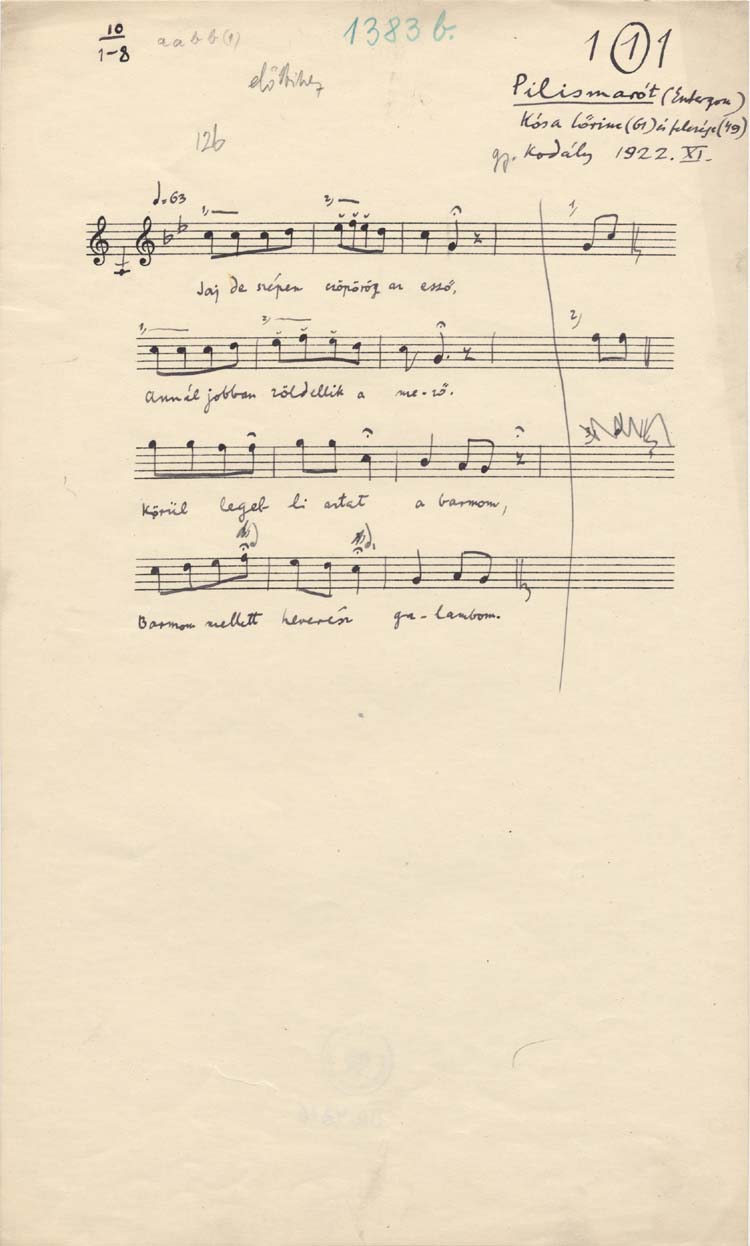 10
1-8
a a b b (1)
1383 b.
1 1 1
Pilismarót (Esztergom)
Kósa Lőrinc (61) és felesége (49)
gy. Kodály 1922. XI.
126
♩=63
1, 2, 1,
Jaj de szépen csöpörög az esső,
1, 2, 2,
Annál jobban zöldellik a me-ző.
Körül legel ki astat a barmom,
Barmom mellett heverész ga-lambom.